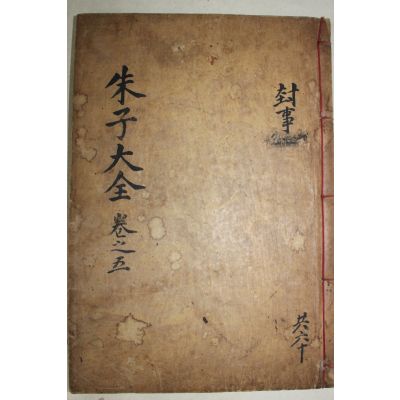 封事
朱子大全 卷之五
共六十